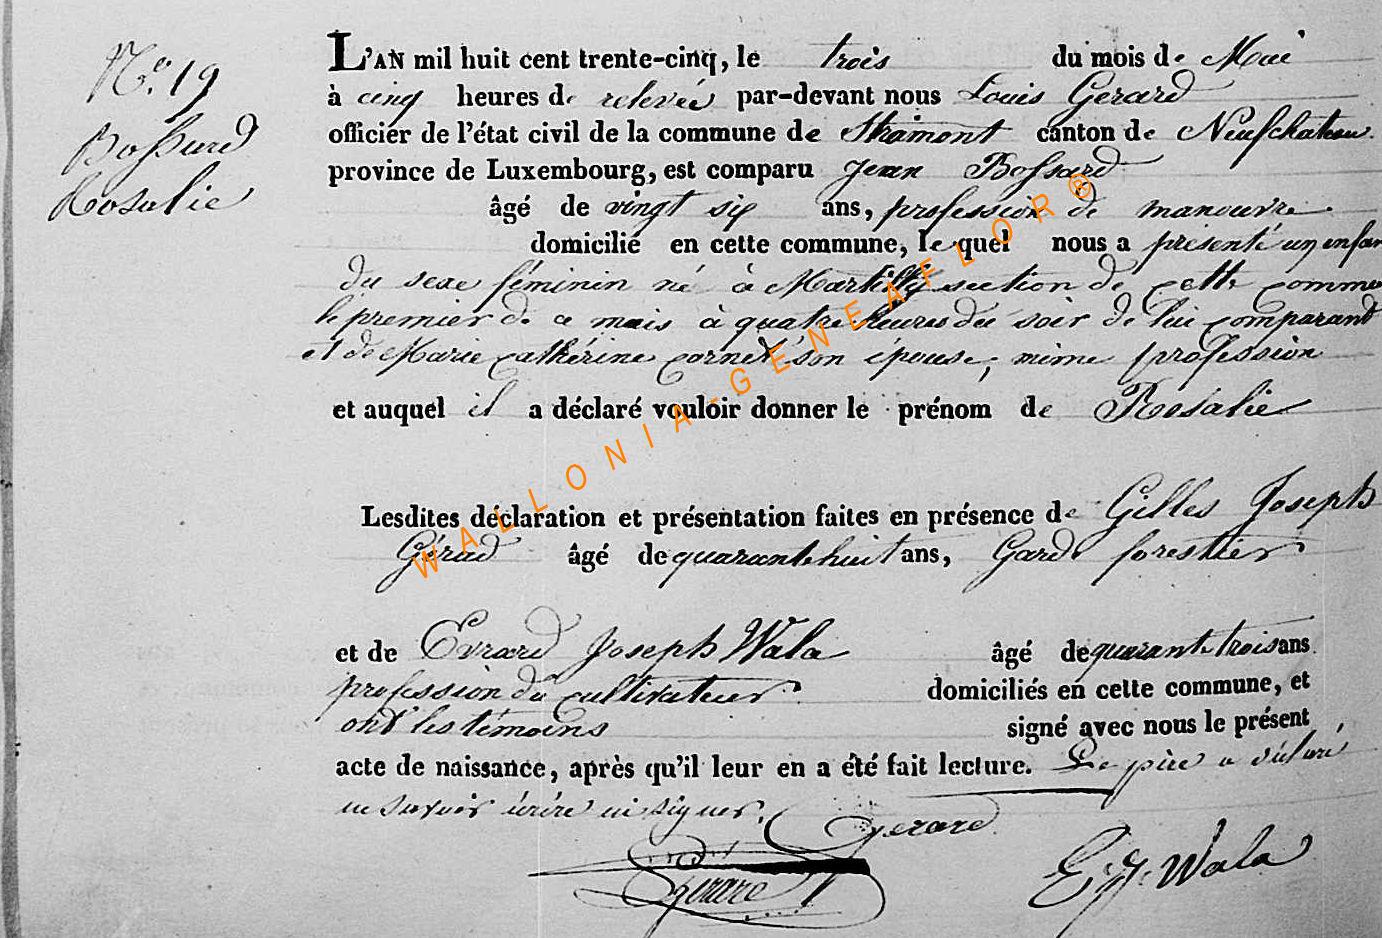 N.° 19
Bossard
Rosalie
L'AN mil huit cent trente-cinq, le trois du mois de Mai
à cinq heures de relevée par-devant nous Louis Gerard
officier de l'état civil de la commune de Straimont canton de Neufchateau
province de Luxembourg, est comparu Jean Bossard
âgé de vingt six ans, profession de manouvre
domicilié en cette commune, le quel nous a présenté un enfan
du sexe féminin né à Martilly section de cette commu
le premier de ce mois à quatre heures du soir de lui comparand
et de Marie Catherine Cornet son épouse, même profession
et auquel il a déclaré vouloir donner le prénom de Rosalie
Lesdites déclaration et présentation faites en présence de Gilles Joseph
Gérard âgé de quarante huit ans, Garde forestier
et de Evrard Joseph Wala âgé de quarante trois ans
profession de cultivateur domiciliés en cette commune, et
ont les témoins signé avec nous le présent
acte de naissance, après qu'il leur en a été fait lecture. Le père a déclaré
ne savoir écrire ni signer.
Gerard
Gerard
E. J. Wala
WALLONIA-GENEAFLOR®